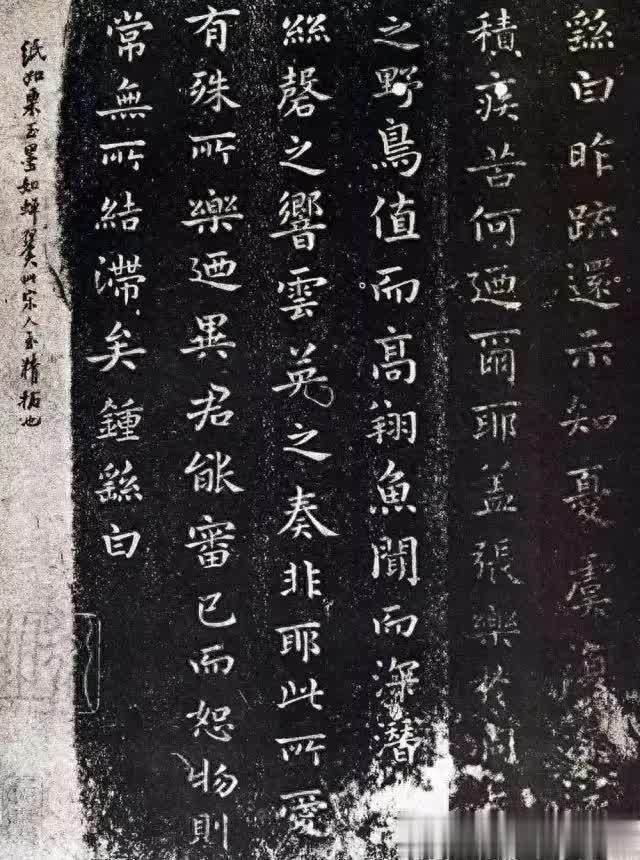 繇白昨疏還示知憂虞復
積疾苦何迺爾耶盖張樂於洞
之野鳥值而高翔魚聞而深潛
絲磬之響雲英之奏非耶此所愛
有殊所樂迺異君能審己而恕物則
常無所結滯矣鍾繇白
紙如東玉墨如蟬翼此宋人至精拓也